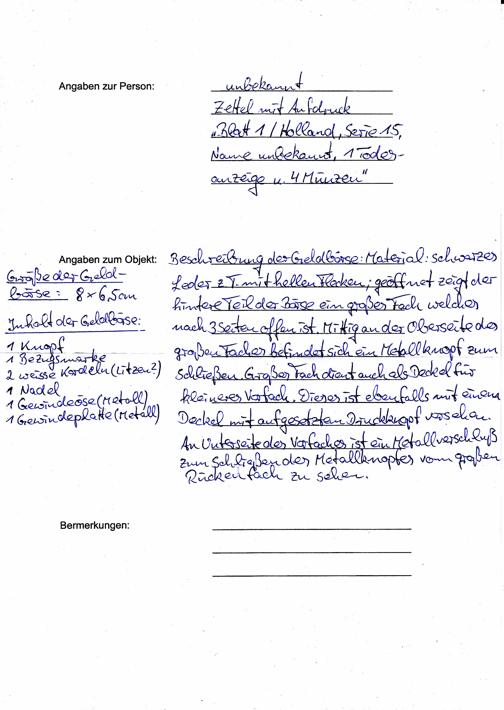 Angaben zur Person:
unbekannt
Zettel mit Aufdruck
„Blatt 1/Holland, Serie 15,
Name unbekannt, 1 Todes-
anzeige u. 4 Münzen"
Angaben zum Objekt:
Größe der Geld-
börse: 8 x 6,5 cm
Inhalt der Geldbörse:
1 Knopf
1 Bezugsmarke
2 weisse Kordeln (Litzen?)
1 Nadel
1 Gewindeöse (Metall)
1 Gewindeplatte (Metall)
Beschreibung der Geldbörse: Material: schwarzes
Leder z.T. mit hellen Flecken, geöffnet zeigt der
hintere Teil der Börse ein großes Fach welches
nach 3 Seiten offen ist. Mittig an der Oberseite des
großen Faches befindet sich ein Metallknopf zum
Schließen. Großes Fach dient auch als Deckel für
kleineres Vorfach. Dieses ist ebenfalls mit einem
Deckel mit aufgesetzten Druckknopf versehen.
An Unterseite des Vorfaches ist ein Metallverschluß
zum Schließen des Metallknopfes vom großen
Rückenfach zu sehen.
Bermerkungen: